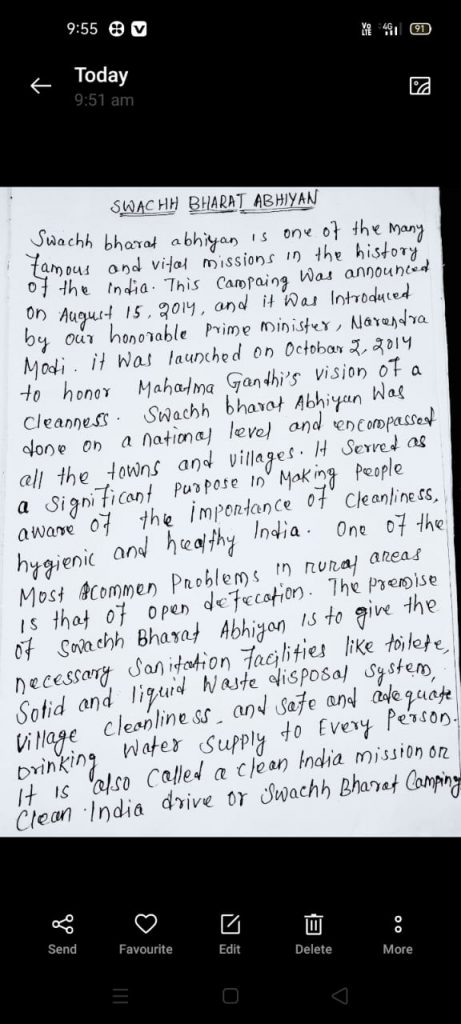 9:55
Vo LTE 4G 91
Today
9:51 am
SWACHH BHARAT ABHIYAN
Swachh bharat abhiyan is one of the many
famous and vital missions in the history
of the India. This Campaing Was announced
on August 15, 2014, and it Was Introduced
by our honorable Prime minister, Narendra
Modi. it Was launched on Octobar 2, 2014
to honor Mahatma Gandhi's vision of a
Cleanness. Swachh bharat Abhiyan Was
done on a national level and encompassed
all the towns and villages. It Served as
a Significant Purpose in Making People
aware of the importance of Cleanliness,
hygienic and healthy India. One of the
Most Commen Problems in rural areas
is that of open defecation. The premise
of Swachh Bharat Abhiyan is to give the
necessary Sanitation facilities like toilete,
Solid and liquid Waste disposal System,
Village Cleanliness, and Safe and adequate
Drinking Water Supply to Every Person.
It is also Called a Clean India mission or
Clean India drive or Swachh Bharat Camping
Send Favourite Edit Delete More